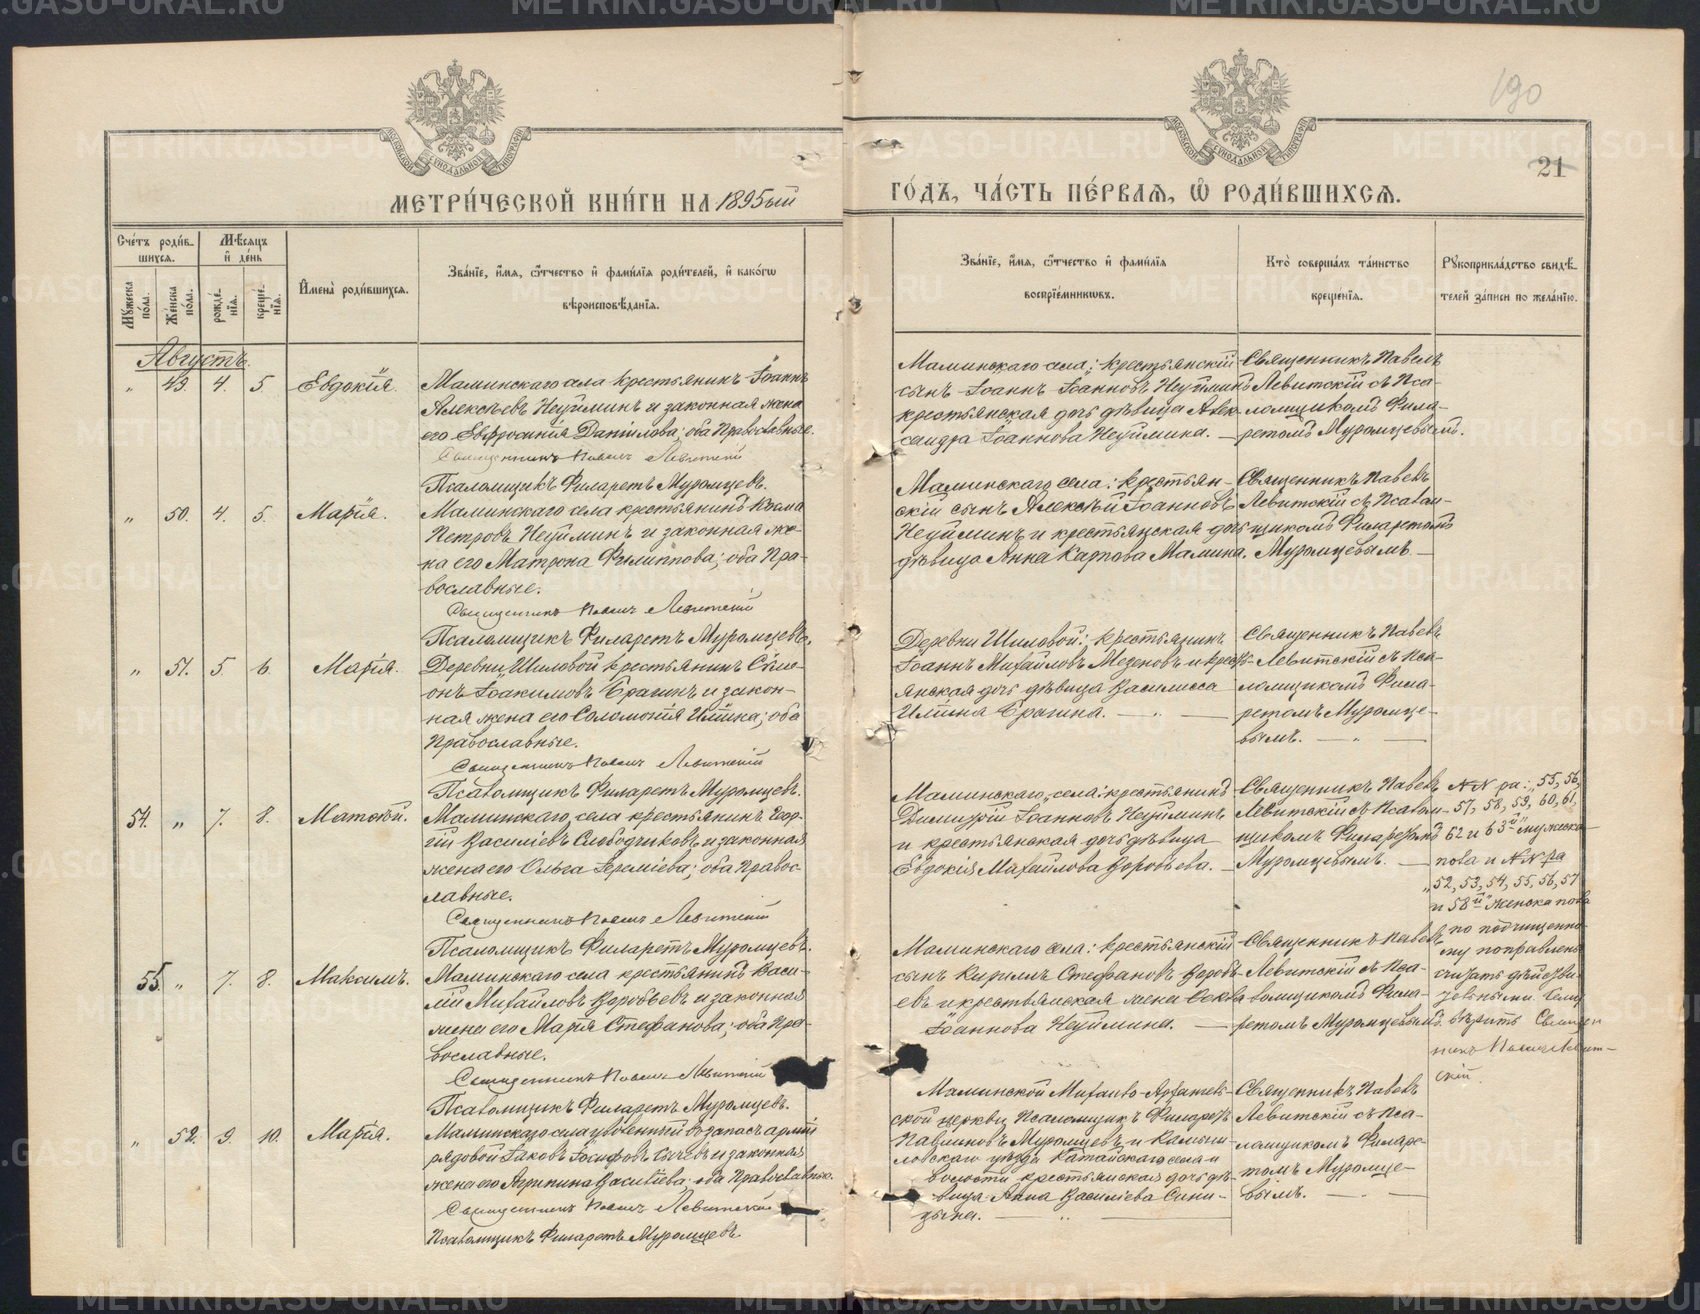 190
21
МЕТРИ́ЧЕСКОЙ КНИ́ГИ НА 1895ый
ГО́ДЪ, ЧА́СТЬ ПЕ́РВАЯ, Ѽ РОДИ́ВШИХСЯ.
Сче́тъ роди́в-
шихся.
Мѣсяцъ
и҆ де́нь
Мꙋ́жеска по́ла.
Же́нска по́ла.
рожде́-
нїя.
креще́-
нїя.
И҆мена̀ роди́вшихся.
Зва́нїе, и҆́мя, ѻ҆́тчество и҆ фами́лїя роди́телей, и҆ како́гѡ
вѣроисповѣ́данїя.
Зва́нїе, и҆́мя, ѻ҆́тчество и҆ фами́лїя
воспрїе́мникѡвъ.
Кто̀ соверша́лъ та́инство
креще́нїя.
Рꙋкоприкла́дство свидѣ́-
телей за́писи по жела́нїю.
Августъ.
" 49. 4. 5. Евдокія.
Маминскаго села крестьянинъ Іоаннъ
Алексѣевъ Неуйминъ и законная жена
его Евфросинія Даніилова; оба Православные.
Священникъ Павелъ Левитскій
Псаломщикъ Филаретъ Муромцевъ.
Маминскаго села: крестьянскій
сынъ Іоаннъ Іоанновъ Неуйминъ
крестьянская дочь дѣвица Алек-
сандра Іоаннова Неуймина. —
Священникъ Павелъ
Левитскій съ Пса-
ломщикомъ Фила-
ретомъ Муромцевымъ.
" 50. 4. 5. Марія.
Маминскаго села крестьянинъ Косма
Петровъ Неуйминъ и законная же-
на его Матрона Филиппова; оба Пра-
вославные.
Священникъ Павелъ Левитскій
Псаломщикъ Филаретъ Муромцевъ.
Маминскаго села: крестьян-
скій сынъ Алексѣй Іоанновъ
Неуйминъ и крестьянская дочь
дѣвица Анна Карпова Мамина.
Священникъ Павелъ
Левитскій съ Псалом-
щикомъ Филаретомъ
Муромцевымъ. —
" 51. 5. 6. Марія.
Деревни Шиловой крестьянинъ Симе-
онъ Іоакимовъ Брагинъ и закон-
ная жена его Соломонія Ильина; оба
Православные.
Священникъ Павелъ Левитскій
Псаломщикъ Филаретъ Муромцевъ.
Деревни Шиловой: крестьянинъ
Іоаннъ Михайловъ Мезеновъ и крест-
янская дочь дѣвица Василисса
Ильина Брагина. — " —
Священникъ Павелъ
Левитскій съ Пса-
ломщикомъ Фила-
ретомъ Муромце-
вымъ. — " —
54. " 7. 8. Матѳей.
Маминскаго села крестьянинъ Геор-
гій Василіевъ Слободчиковъ и законная
жена его Ольга Іереміева; оба Правос-
лавные.
Священникъ Павелъ Левитскій
Псаломщикъ Филаретъ Муромцевъ.
Маминскаго села: крестьянинъ
Димитрій Іоанновъ Неуйминъ
и крестьянская дочь дѣвица
Евдокія Михайлова Воробьева. —
Священникъ Павелъ
Левитскій съ Псалом-
щикомъ Филаретомъ
Муромцевымъ. —
NN ра: "55, 56,
57, 58, 59, 60, 61,
62 и 63й" мужеска
пола и NN ра
"52, 53, 54, 55, 56, 57
и 58й" женска пола
по подчищенно-
му поправлены
считать дѣйстви-
тельными. Сему
вѣрить Священ
никъ Павелъ Левит-
скій.
55. " 7. 8. Максимъ.
Маминскаго села крестьянинъ Васи-
лій Михайловъ Воробьевъ и законная
жена его Марія Стефанова; оба Пра-
вославные.
Священникъ Павелъ Левитскій
Псаломщикъ Филаретъ Муромцевъ.
Маминскаго села: крестьянскій
сынъ Кириллъ Стефановъ Воробь-
евъ и крестьянская жена Секла
Іоаннова Неуймина. —
Священникъ Павелъ
Левитскій съ Пса-
ломщикомъ Фила-
ретомъ Муромцевымъ.
" 52. 9. 10. Марія.
Маминскаго села уволенный въ запасъ арміи
рядовой Іаковъ Іосифовъ и законная
жена его Агрипина Василіева, оба Православные.
Священникъ Павелъ Левитскій
Псаломщикъ Филаретъ Муромцевъ.
Маминской Михаило-Архангель-
ской церкви Псаломщикъ Филаретъ
Павлиновъ Муромцевъ и Камыш-
ловскаго уѣзда Катайскаго села и
волости крестьянская дочь дѣ-
вица Анна Василіева Сини-
цына. — " —
Священникъ Павелъ
Левитскій съ Пса-
ломщикомъ Филаре-
томъ Муромце-
вымъ. — " —
METRIKI.GASU-URAL.RU